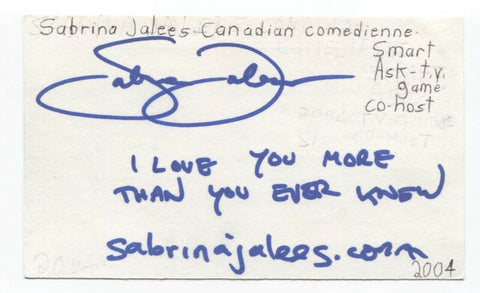 Sabrina Jalees. Canadian comedienne.
Smart
Ask - t.v.
game
co-host
Sabrina Jalees
I LOVE YOU MORE
THAN YOU EVER KNEW
sabrinajalees.com
2004
2004